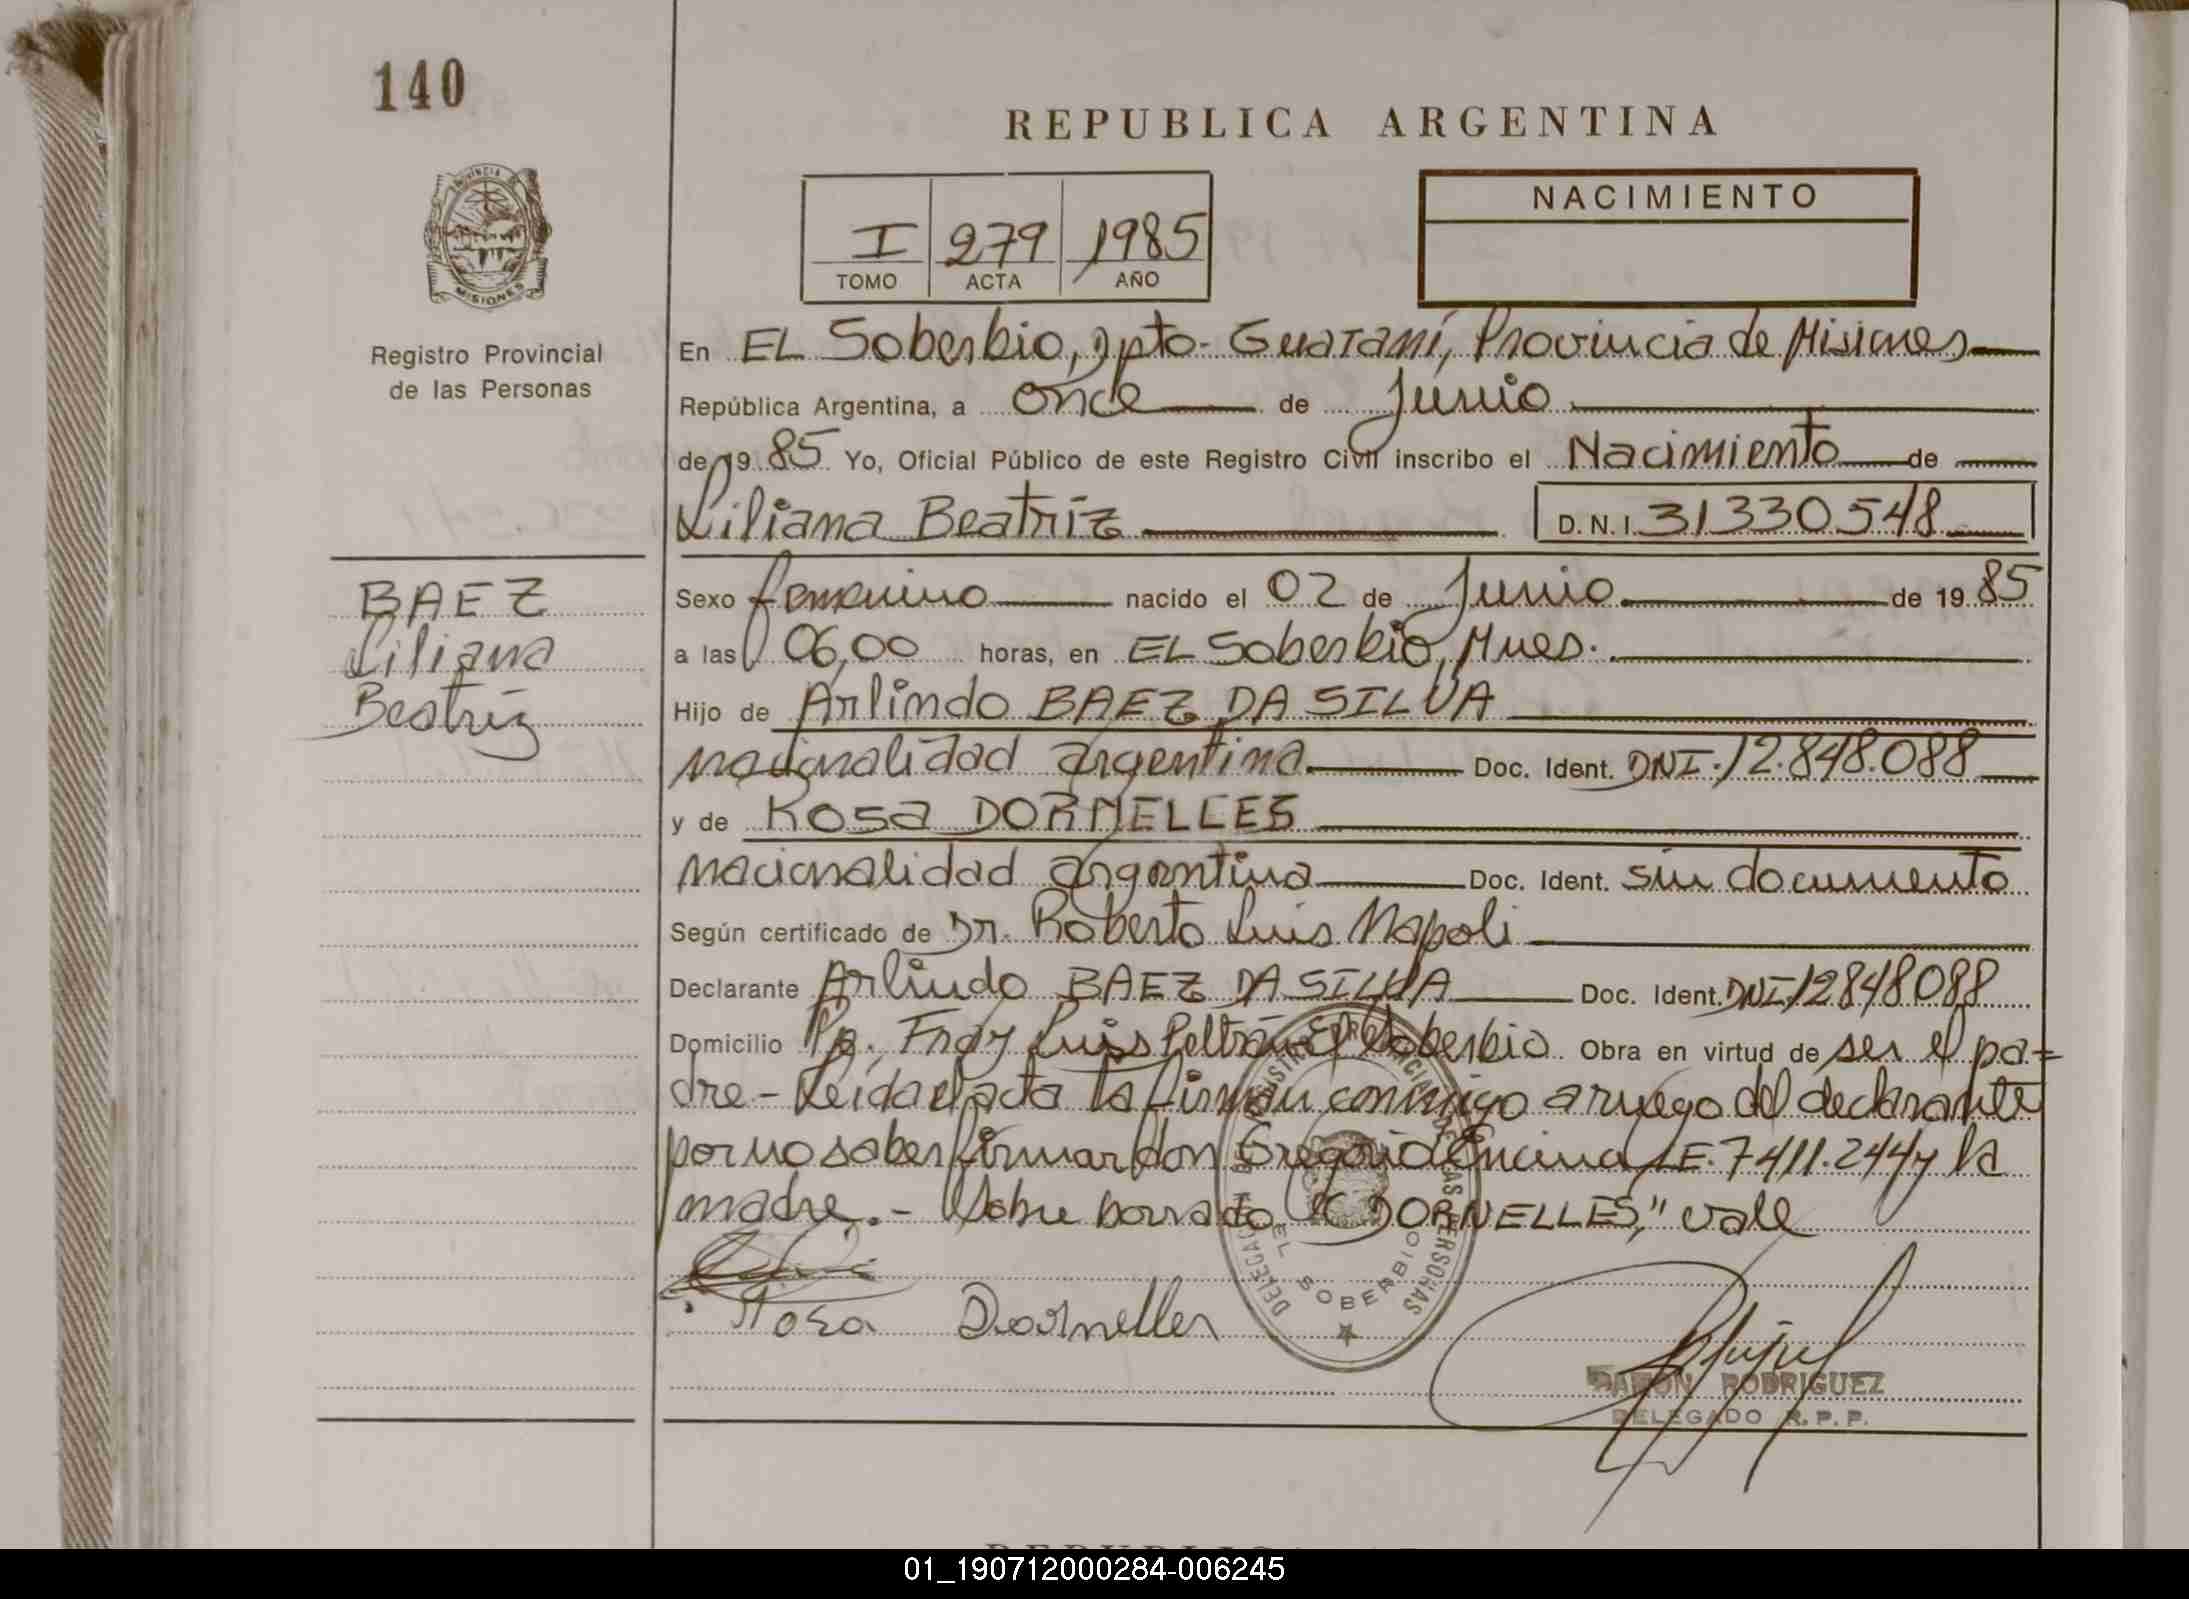 140
REPUBLICA ARGENTINA
PROVINCIA DE
MISIONES
Registro Provincial
de las Personas
I 279 1985
TOMO ACTA AÑO
NACIMIENTO
En EL Soberbio, Dpto- Guaraní, Provincia de Misiones
República Argentina, a once de Junio
de 1985 Yo, Oficial Público de este Registro Civil inscribo el Nacimiento de
Liliana Beatriz D.N.I. 31330548
BAEZ
Liliana
Beatriz
Sexo femenino nacido el 02 de Junio de 1985
a las 06,00 horas, en EL Soberbio, Mnes.
Hijo de Arlindo BAEZ DA SILVA
nacionalidad argentina Doc. Ident. DNI. 12.848.088
y de Rosa DORNELLES
nacionalidad argentina Doc. Ident. sin documento
Según certificado de Dr. Roberto Luis Napoli
Declarante Arlindo BAEZ DA SILVA Doc. Ident. DNI. 12848088
Domicilio Fray Luis Beltrán El Soberbio Obra en virtud de ser el pa=
dre- Leída el acta la firman conmigo a ruego del declarante
por no saber firmar don Gregorio Encina LE. 7411.244 y la
madre.- Sobre borrado "DORNELLES," vale
Rosa Dornelles
EL SOBERBIO
RAMON RODRIGUEZ
DELEGADO R.P.P.
01_190712000284-006245